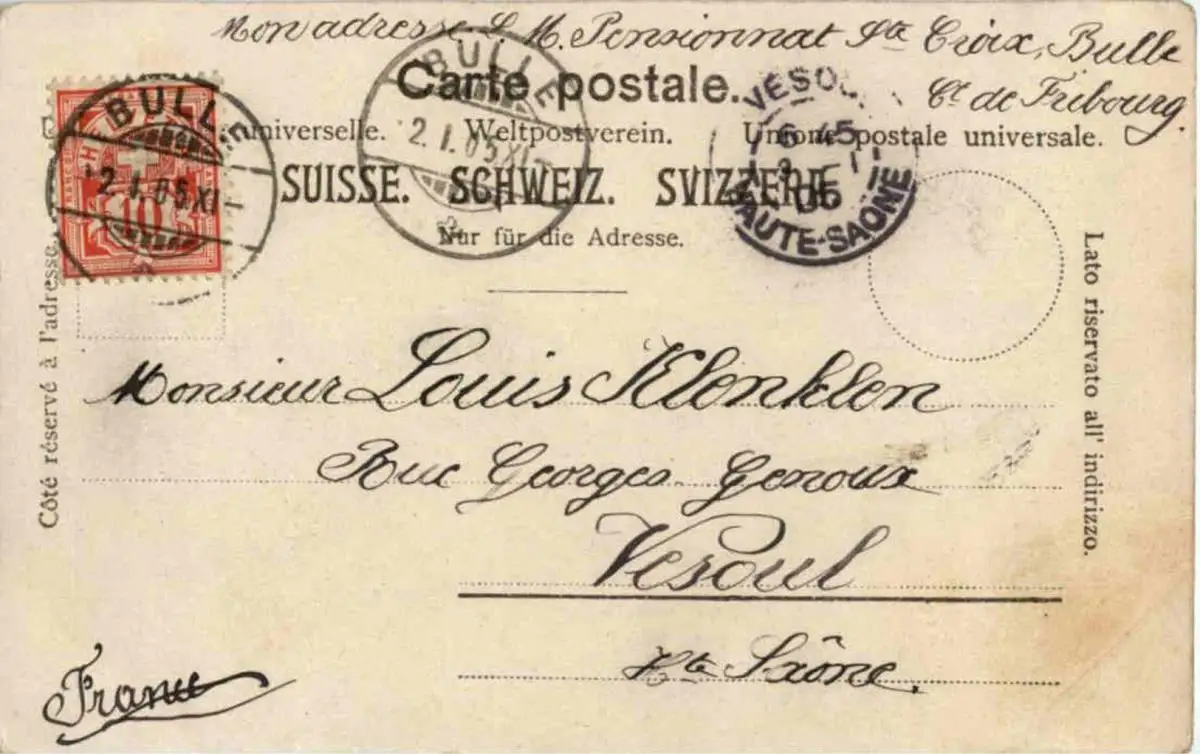 Mon adresse S. M. Pensionnat Ste Croix, Bulle
Ct de Fribourg.
Carte postale.
universelle. Weltpostverein. Unione postale universale.
SUISSE. SCHWEIZ. SVIZZERA.
Nur für die Adresse.
BULLE
2.I.05.XI
10
BULLE
2.I.05.XI
VESOUL
HAUTE-SAONE
Côté réservé à l'adresse.
Lato riservato all' indirizzo.
Monsieur Louis Klenklen
Rue Georges Genoux
Vesoul
Hte Saône.
France